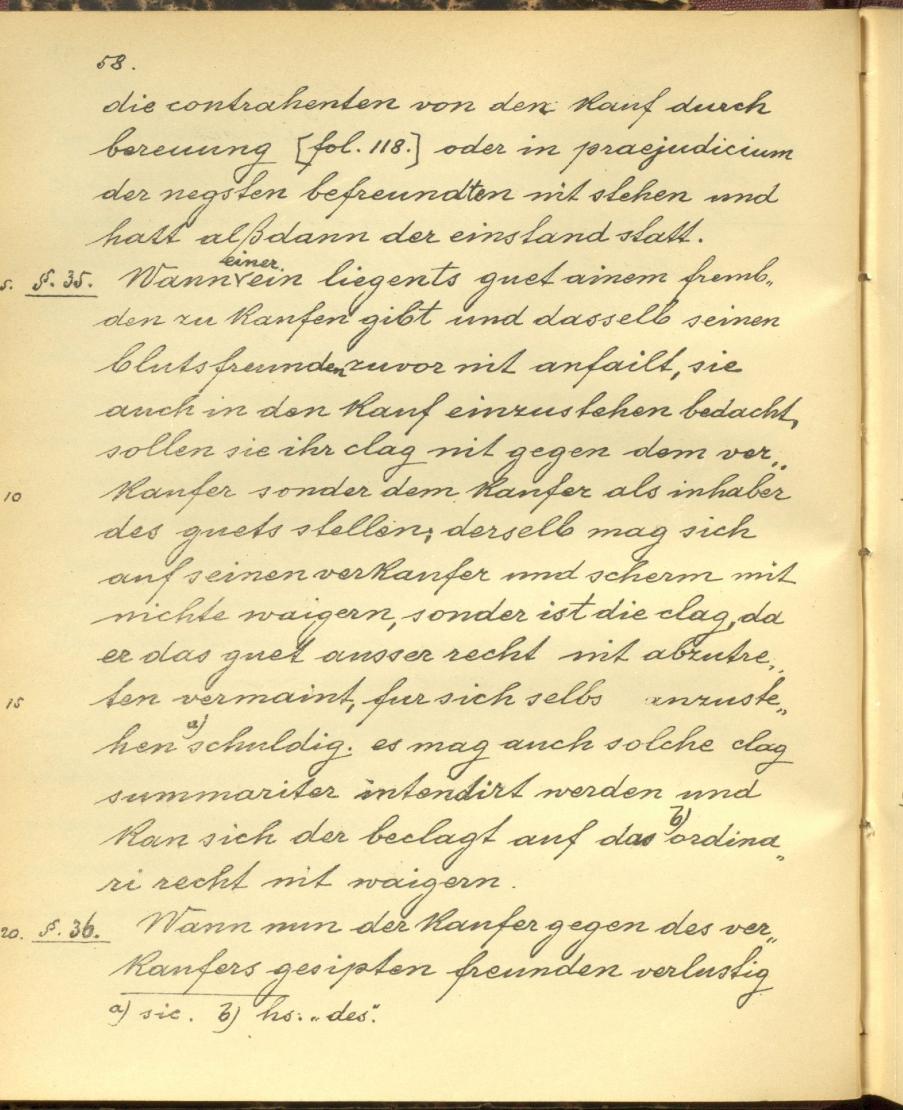 58.
die contrahenten von den kauf durch
bereuung [fol. 118.] oder in praejudicium
der negsten befreundten nit stehen und
hatt alßdann der einstand statt.
5. §. 35. Wann einer ein liegents guet ainem fremb„
den zu kaufen gibt und dasselb seinen
blutsfreunden zuvor nit anfailt, sie
auch in den kauf einzustehen bedacht,
sollen sie ihr clag nit gegen dem ver„
10 kaufer sonder dem kaufer als inhaber
des guets stellen; derselb mag sich
auf seinen verkaufer und scherm mit
nichte waigern, sonder ist die clag, da
er das guet ausser recht nit abzutre„
15 ten vermaint, fur sich selbs anzuste„
hen a) schuldig. es mag auch solche clag
summariter intendirt werden und
kan sich der beclagt auf das b) ordina„
ri recht nit waigern.
20. §. 36. Wann nun der kaufer gegen des ver„
kaufers gesipten freunden verlustig
a) sic. b) hs: „des".